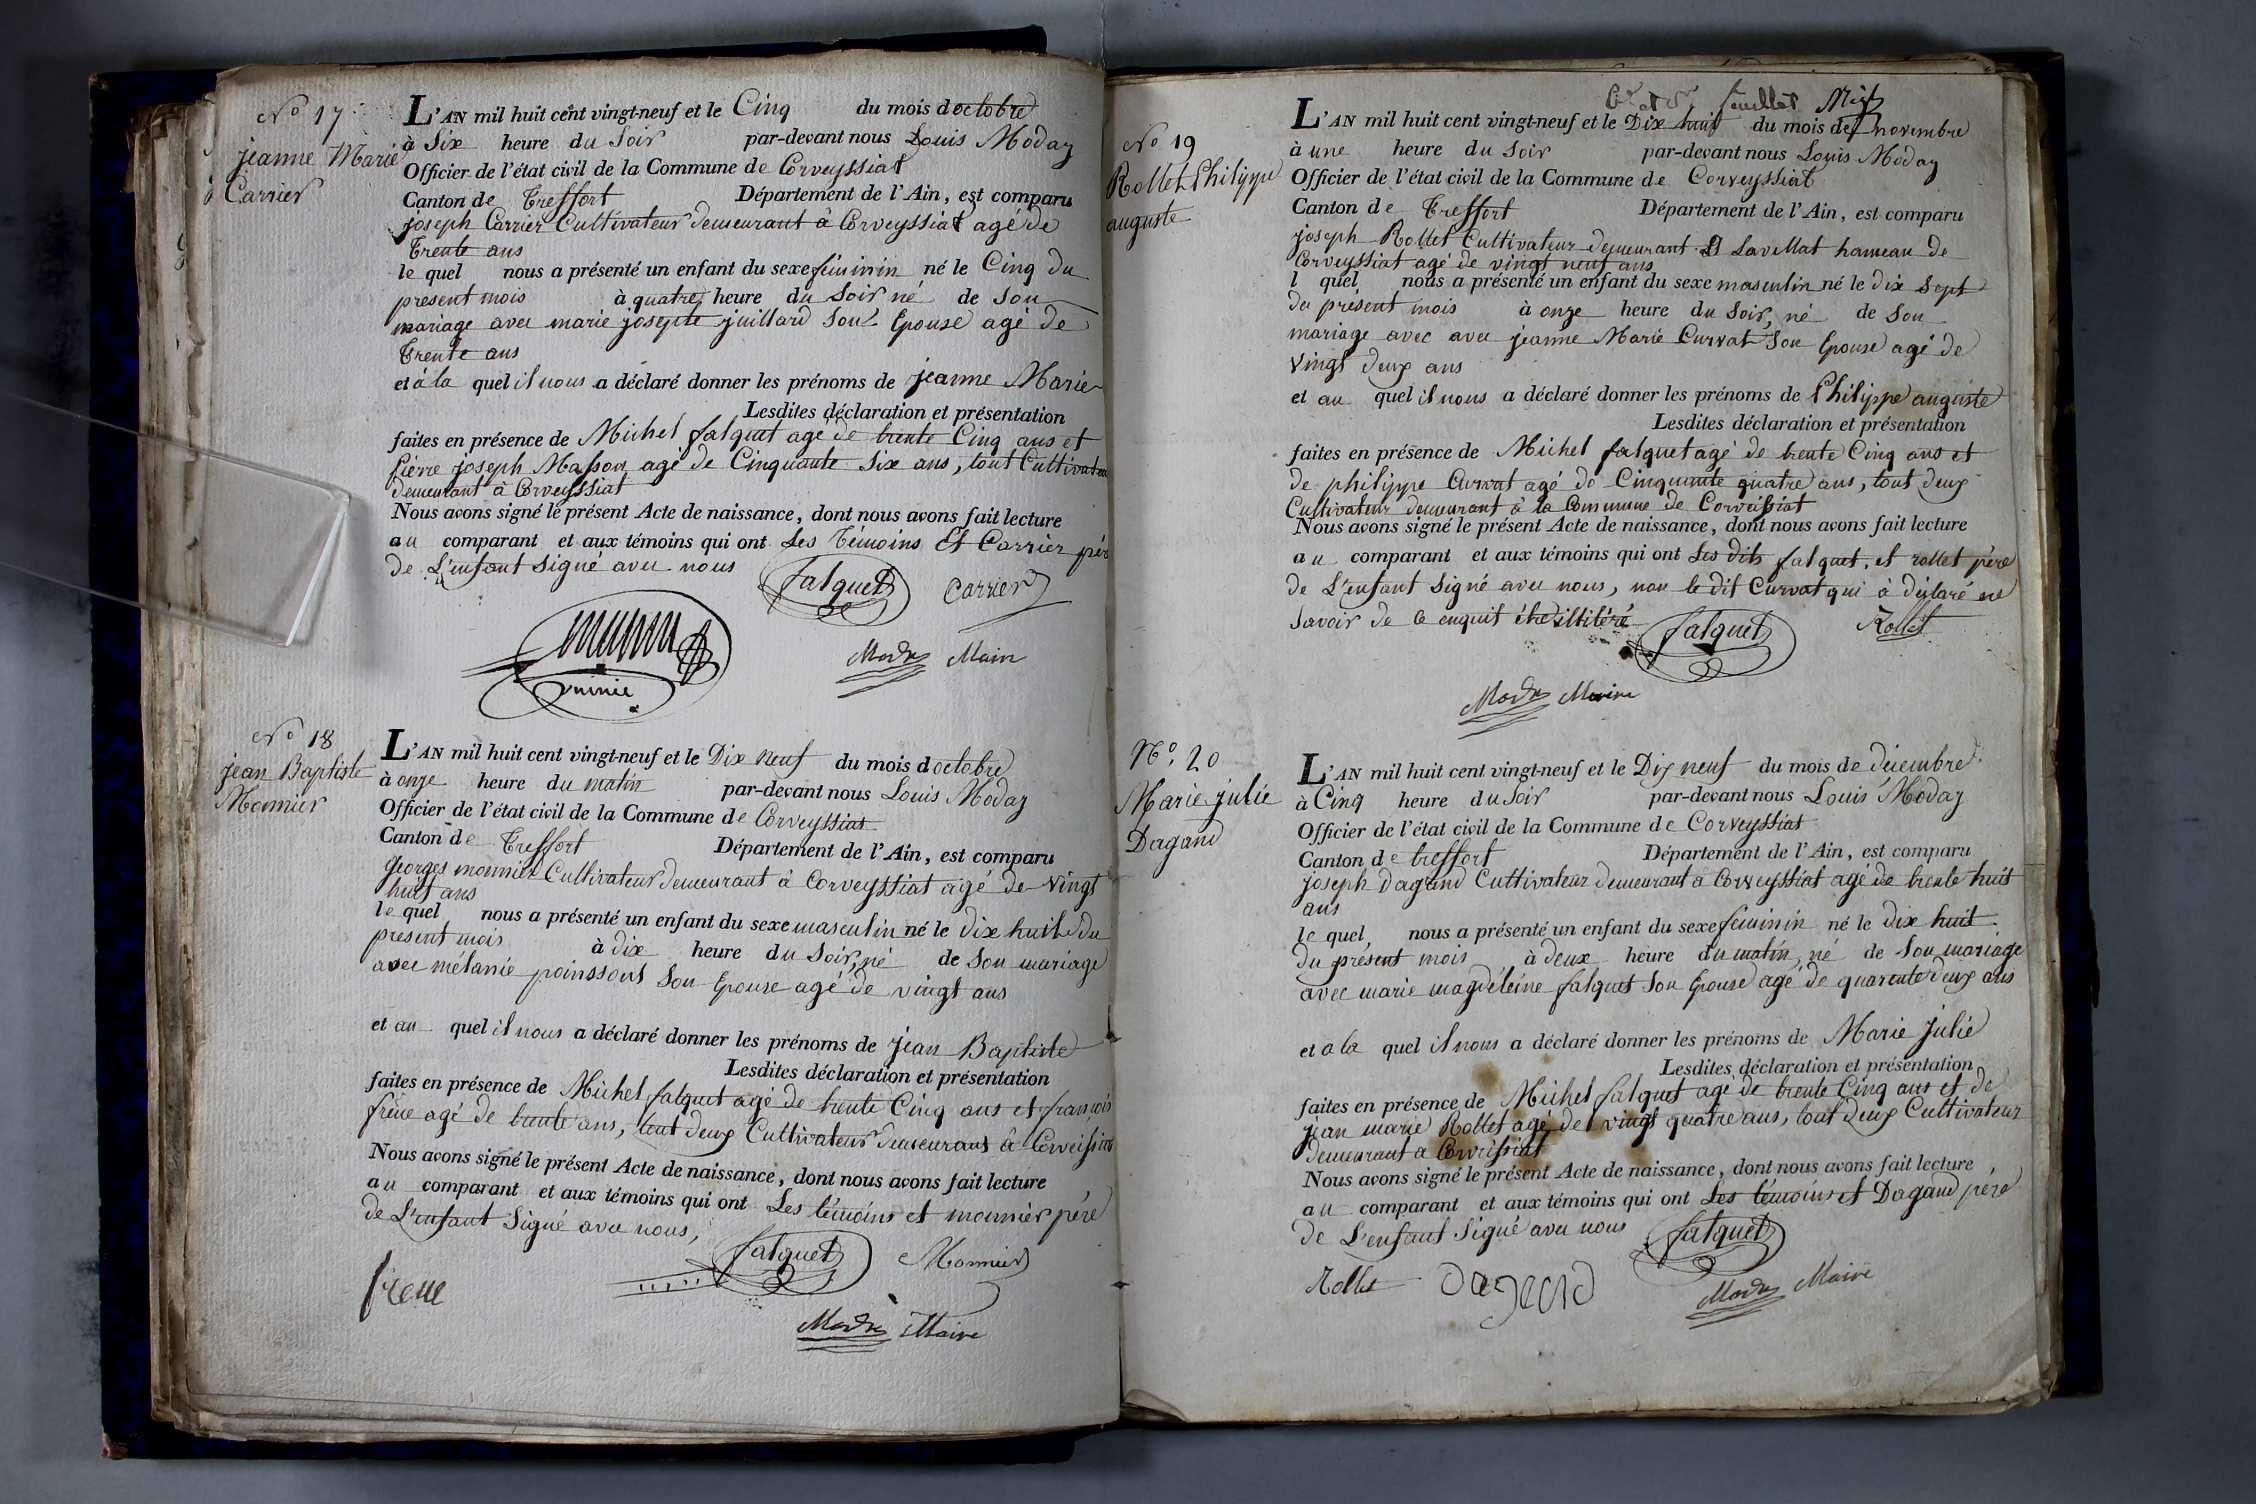 No 17
jeanne Marie
Carrier
L'AN mil huit cent vingt-neuf et le Cinq du mois doctobre
à Six heure du Soir par-devant nous Louis Moday
Officier de l'état civil de la Commune de Corveyssiat
Canton de Treffort Département de l'Ain, est comparu
joseph Carrier Cultivateur demeurant à Corveyssiat agé de
Trente ans
le quel nous a présenté un enfant du sexe féminin né le Cinq du
présent mois à quatre heure du Soir né de Son
mariage avec marie josepte juillard Son Epouse agé de
Trente ans
et à la quel il nous a déclaré donner les prénoms de jeanne Marie
Lesdites déclaration et présentation
faites en présence de Michel falquet agé de trente Cinq ans et
pierre joseph Masson agé de Cinquante Six ans, tout Cultivateur
demeurant à Corveyssiat
Nous avons signé le présent Acte de naissance, dont nous avons fait lecture
au comparant et aux témoins qui ont Les Témoins Et Carrier père
de L'enfant Signé avec nous
falquet Carrier
Moday Maire
No 18
jean Baptiste
Monnier
L'AN mil huit cent vingt-neuf et le Dix neuf du mois doctobre
à onze heure du matin par-devant nous Louis Moday
Officier de l'état civil de la Commune de Corveyssiat
Canton de Treffort Département de l'Ain, est comparu
georges monnier Cultivateur demeurant à Corveyssiat agé de vingt
huit ans
le quel nous a présenté un enfant du sexe masculin né le dix huit du
présent mois à dix heure du Soir, né de Son mariage
avec mélanie poinssont Son Epouse agé de vingt ans
et au quel il nous a déclaré donner les prénoms de jean Baptiste
Lesdites déclaration et présentation
faites en présence de Michel falquet agé de trente Cinq ans et françois
frène agé de trente ans, tout deux Cultivateur demeurant à Corveissiat
Nous avons signé le présent Acte de naissance, dont nous avons fait lecture
au comparant et aux témoins qui ont Les témoins et monnier père
de L'enfant Signé avec nous,
falquet Monnier
frene
Moday Maire
feuillet
No 19
Rollet Philippe
auguste
L'AN mil huit cent vingt-neuf et le Dix huit du mois de novembre
à une heure du Soir par-devant nous Louis Moday
Officier de l'état civil de la Commune de Corveyssiat
Canton de Treffort Département de l'Ain, est comparu
joseph Rollet Cultivateur demeurant à Savellat hameau de
Corveyssiat agé de vingt neuf ans
l quel nous a présenté un enfant du sexe masculin né le dix Sept
du présent mois à onze heure du Soir, né de Son
mariage avec avec jeanne Marie Curvat Son Epouse agé de
Vingt deux ans
et au quel il nous a déclaré donner les prénoms de Philippe auguste
Lesdites déclaration et présentation
faites en présence de Michel falquet agé de trente Cinq ans et
de philippe Curvat agé de Cinquante quatre ans, tout deux
Cultivateur demeurant à la Commune de Corveissiat
Nous avons signé le présent Acte de naissance, dont nous avons fait lecture
au comparant et aux témoins qui ont Les dits falquet, et rollet père
de L'enfant Signé avec nous, non le dit Curvat qui à déclaré ne
Savoir de ce enquit être illitéré
falquet Rollet
Moday Maire
No. 20
Marie julie
Dagand
L'AN mil huit cent vingt-neuf et le Dix neuf du mois de décembre
à Cinq heure du Soir par-devant nous Louis Moday
Officier de l'état civil de la Commune de Corveyssiat
Canton de treffort Département de l'Ain, est comparu
joseph Dagand Cultivateur demeurant à Corveyssiat agé de trente huit
ans
le quel, nous a présenté un enfant du sexe féminin né le dix huit
du présent mois à deux heure du matin, né de Son mariage
avec marie magdeleine falquet Son Epouse agé de quarente deux ans
et a la quel il nous a déclaré donner les prénoms de Marie julie
Lesdites déclaration et présentation
faites en présence de Michel falquet agé de trente Cinq ans et de
jean marie Rollet agé de vingt quatre ans, tout deux Cultivateur
demeurant à Corveissiat
Nous avons signé le présent Acte de naissance, dont nous avons fait lecture
au comparant et aux témoins qui ont Les témoins et Dagand père
de L'enfant Signé avec nous
falquet
Rollet Dagand
Moday Maire